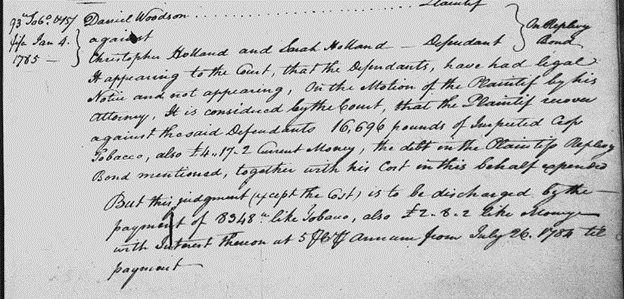 Plaintiff
93 Tobo. @ 15/ Daniel Woodson
fifa Jan 4. against On Replevy
1785 — Christopher Holland and Sarah Holland — Defendant Bond
It appearing to the Court, that the Defendants, have had legal
Notice and not appearing, On the Motion of the Plaintif by his
Attorney, It is considered by the Court, that the Plaintif recover
against the said Defendants 16,696 pounds of Inspected Crop
Tobacco, also £4.17.2 Current Money, the debt in the Plaintiffs Replevy
Bond mentioned, together with his Cost in this behalf expended
But this judgment (except the Cost) is to be discharged by the —
payment of 8348 like Tobacco, also £2.8.2 like Money
with Interest thereon at 5 P Ct P Annum from July 26. 1784 til
payment